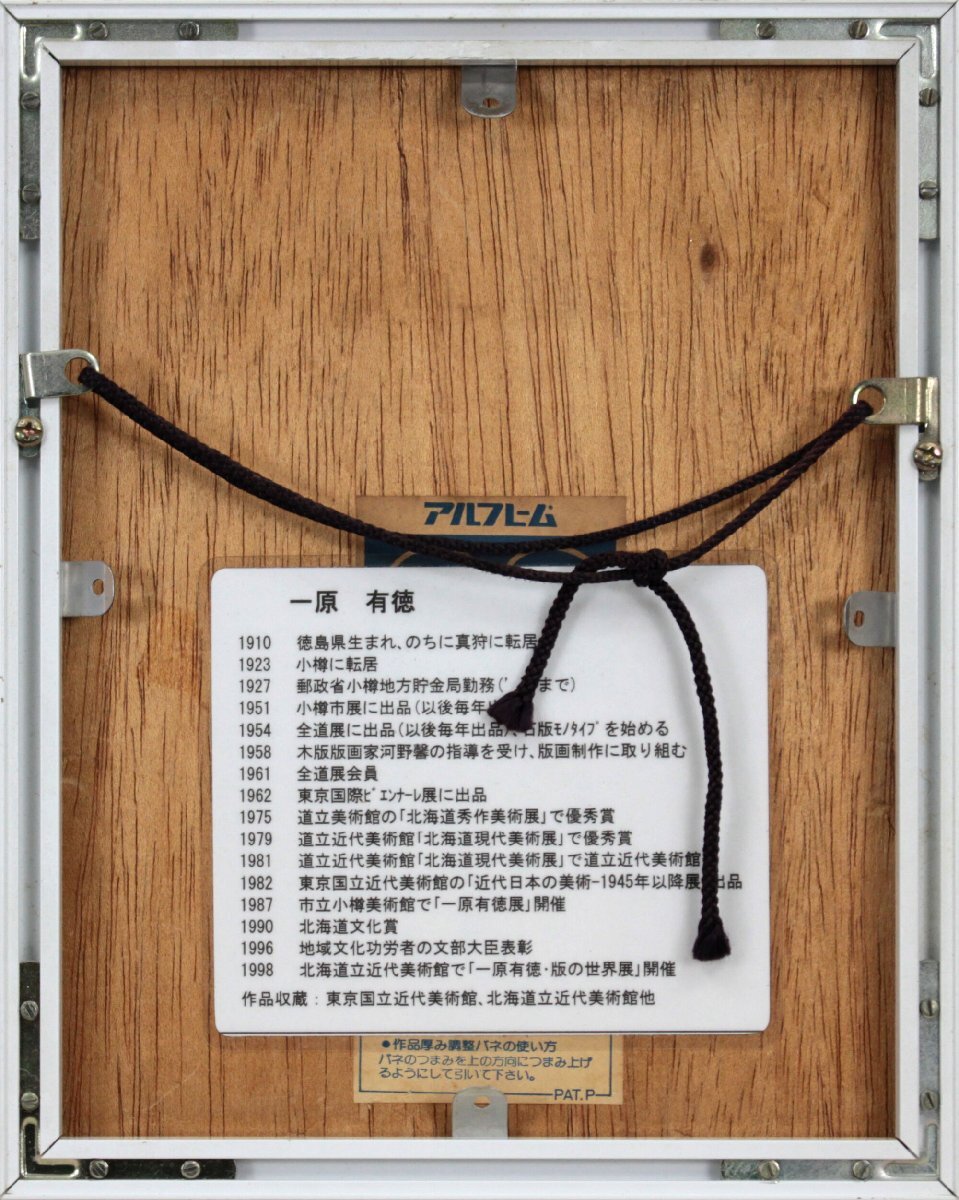 アルフレーム
一原　有徳
1910　徳島県生まれ、のちに真狩に転居
1923　小樽に転居
1927　郵政省小樽地方貯金局勤務(' まで)
1951　小樽市展に出品(以後毎年
1954　全道展に出品(以後毎年出品)、石版ﾓﾉﾀｲﾌﾟを始める
1958　木版版画家河野馨の指導を受け、版画制作に取り組む
1961　全道展会員
1962　東京国際ﾋﾞｴﾝﾅｰﾚ展に出品
1975　道立美術館の「北海道秀作美術展」で優秀賞
1979　道立近代美術館「北海道現代美術展」で優秀賞
1981　道立近代美術館「北海道現代美術展」で道立近代美術館
1982　東京国立近代美術館の「近代日本の美術-1945年以降展 出品
1987　市立小樽美術館で「一原有徳展」開催
1990　北海道文化賞
1996　地域文化功労者の文部大臣表彰
1998　北海道立近代美術館で「一原有徳・版の世界展」開催
作品収蔵：東京国立近代美術館、北海道立近代美術館他
●作品厚み調整バネの使い方
バネのつまみを上の方向につまみ上げ
るようにして引いて下さい。
PAT.P